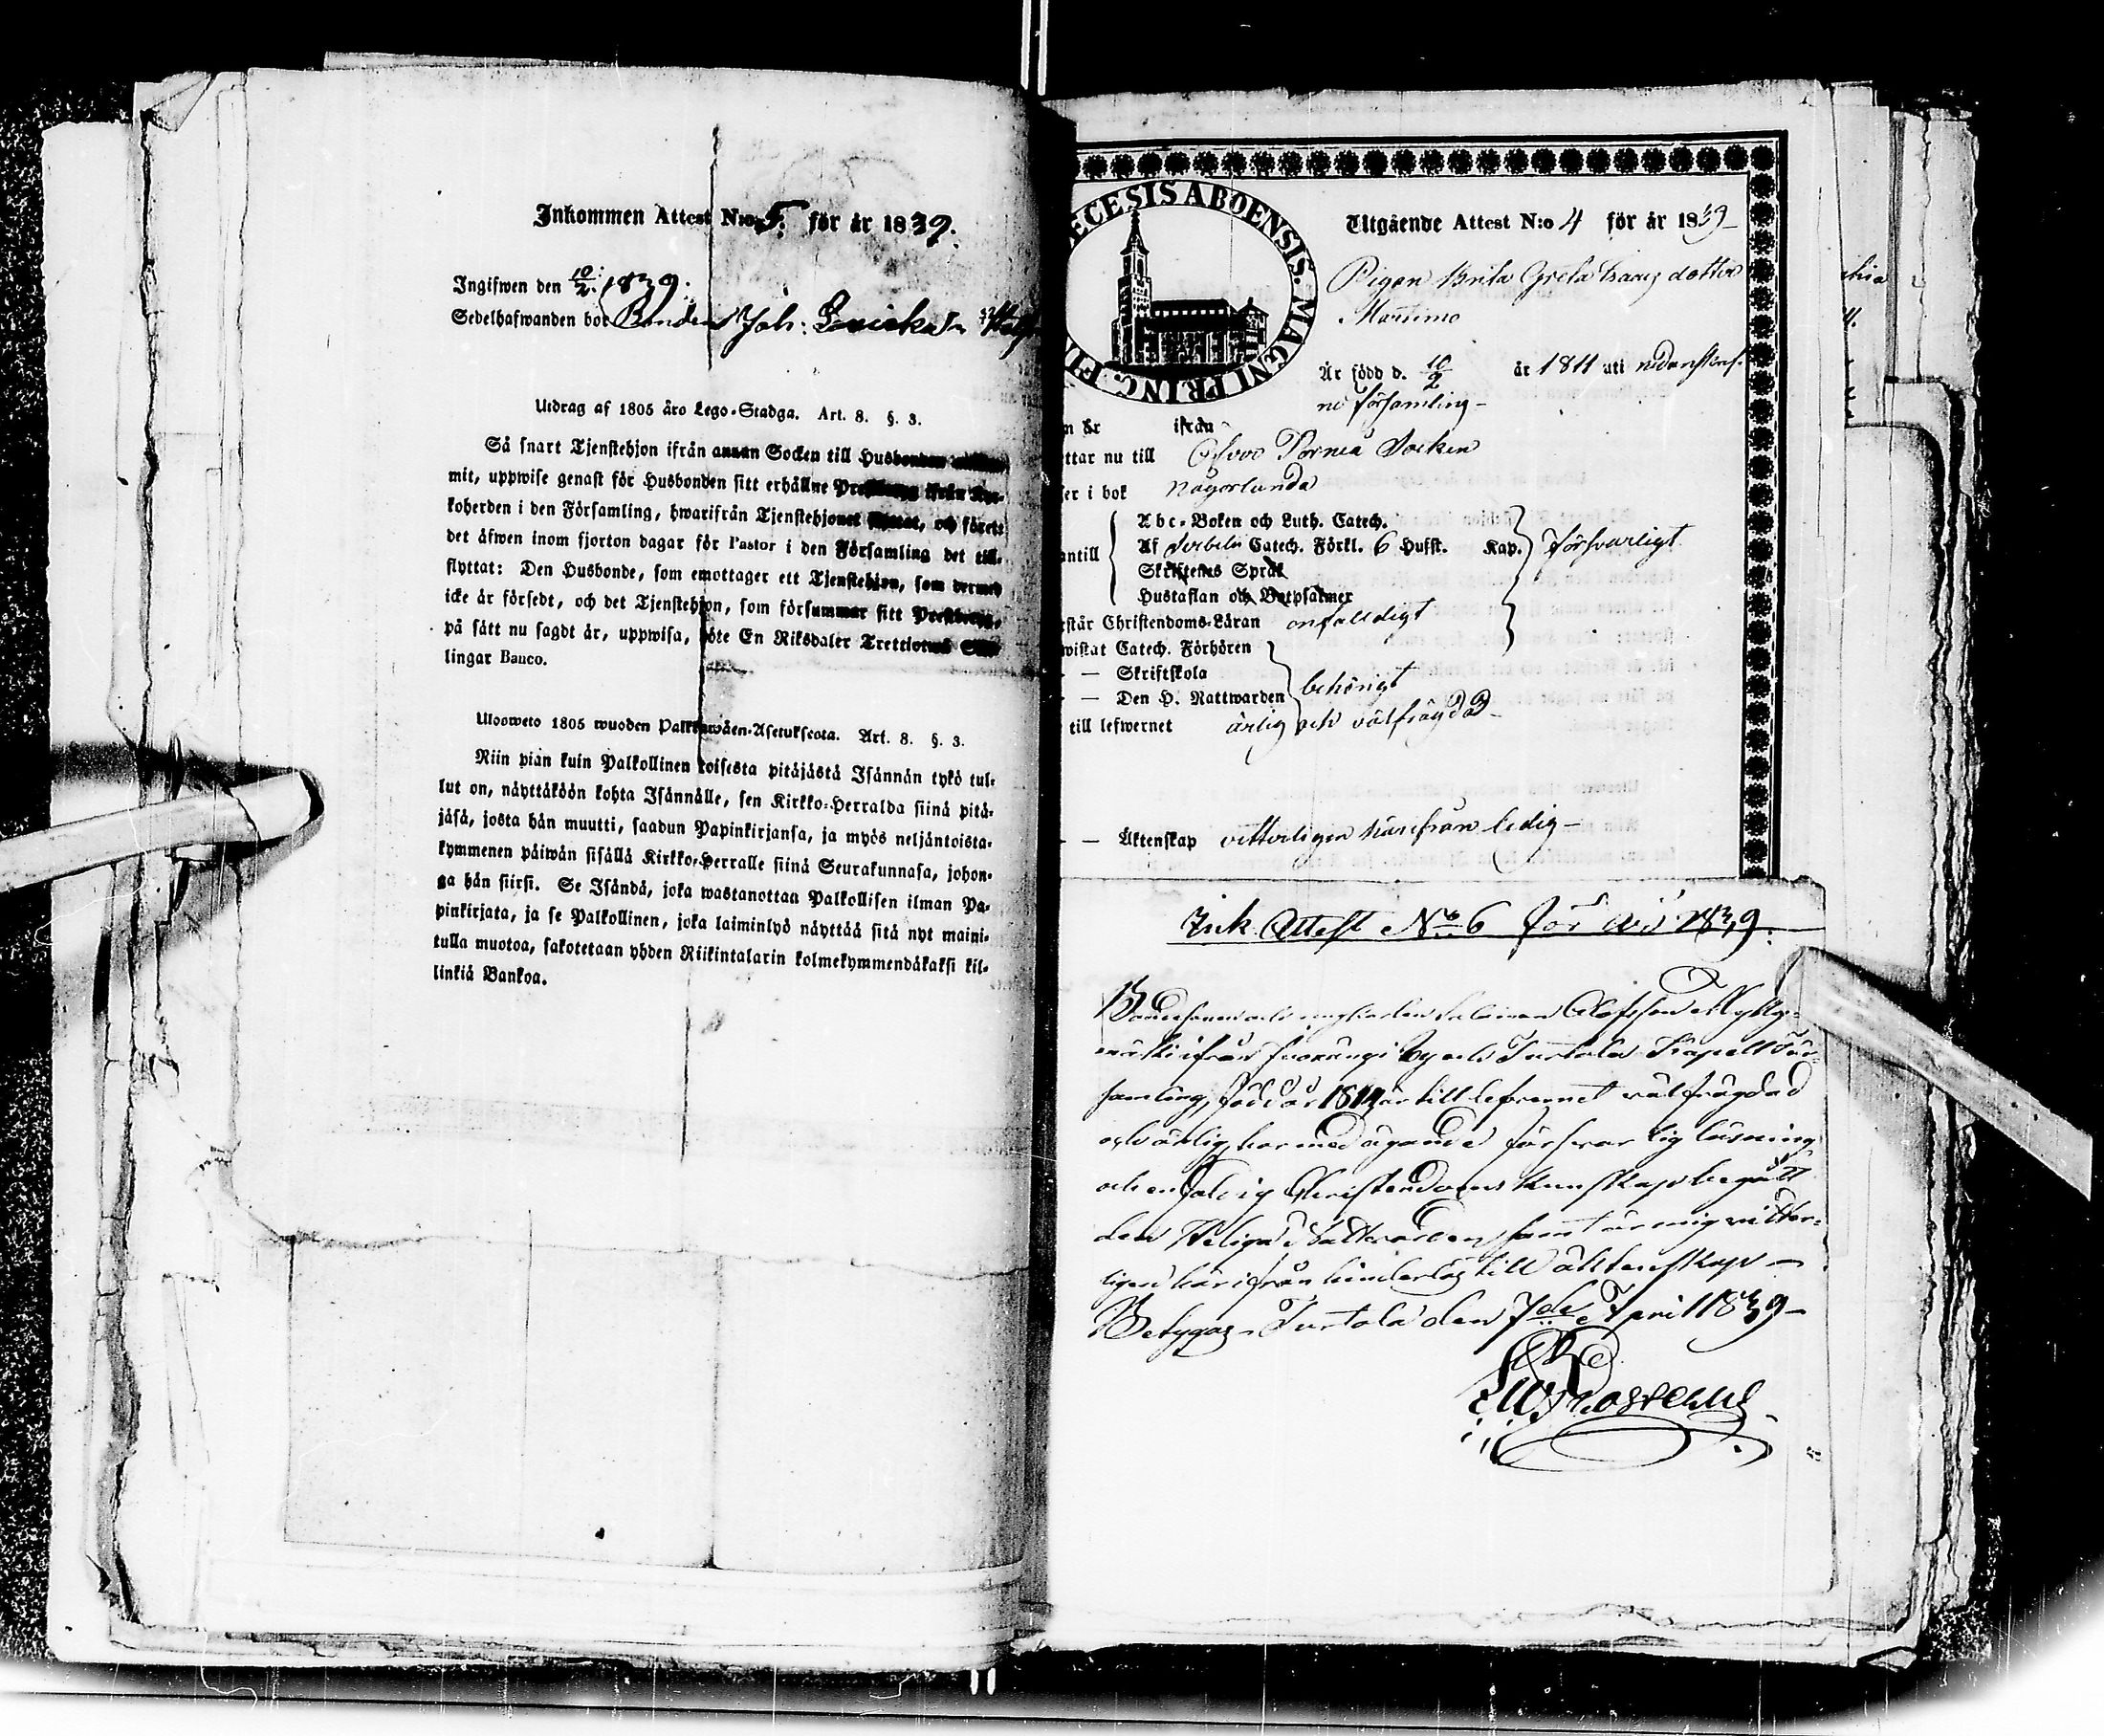 Inkommen Attest N:o 5. för år 1839.
Ingifwen den 10/2. 1839.
Sedelhafwanden bor Bonden Joh:
Utdrag af 1805 åro Lego-Stadga. Art. 8. §. 3.
Så snart Tjenstehjon ifrån annan Socken till Husbonden
mit, uppwise genast för Husbonden sitt erhållne ifrån Kyr-
koherden i den Församling, hwarifrån Tjenstehjonet flyttat, och förete
det äfwen inom fjorton dagar för Pastor i den Församling det till-
flyttat: Den Husbonde, som emottager ett Tjenstehjon, som dermed
icke är försedt, och det Tjenstehjon, som försummar sitt Prestbetyg,
på sätt nu sagdt är, uppwisa, böte En Riksdaler Trettiotwå Skil-
lingar Banco.
Ulosweto 1805 wuoden Palkkawäen-Asetuksesta. Art. 8. §. 3.
Niin pian kuin Palkollinen toisesta pitäjästä Isännän tykö tul-
lut on, näyttäköön kohta Isännälle, sen Kirkko-Herralda siinä pitä-
jäsä, josta hän muutti, saadun Papinkirjansa, ja myös neljäntoista-
kymmenen päiwän sisällä Kirkko-Herralle siinä Seurakunnasa, johon-
ga hän siirsi. Se Isändä, joka wastanottaa Palkollisen ilman Pa-
pinkirjata, ja se Palkollinen, joka laiminlyö näyttää sitä nyt maini-
tulla muotoa, sakotetaan yhden Riikintalarin kolmekymmendäkaksi kil-
linkiä Bankoa.
ECESIS ABOENSIS. MAGNI PRINC. FIN
Utgående Attest N:o 4 för år 1839
Pigan Brita Greta Isaacs dotter
Martimo
Är född d. 10/2 år 1811 uti nedanskref.
ne församling
n år ifrån
ttar nu till Öfver Torneå Socken
er i bok någorlunda
Abc-Boken och Luth. Catech.
ntill Af Svebelii Catech. Förkl. 6 Hufst. Kap. försvarligt
Skriftenes Språk
Hustaflan och Botpsalmer
står Christendoms-Läran enfalldigt
wistat Catech. Förhören
— Skriftskola
— Den H. Nattwarden behörigt
till lefwernet ärlig och välfrägdad
— — Äktenskap vetterligen härifrån ledig
Ink. Attest No 6 för år 1839.
Bondesonen och ynglingen Salomon Olofsson
ifrån by och Turtola Kapell För-
samling, född år 1814 är till lefvernet välfrägdad
och ärlig, har med ägande försvarlig läsning
och enfaldig Christendoms kunskap begått
den Heliga Nattvarden, samt är mig vitter-
ligen härifrån hinderlös till äktenskap —
Betygas Turtola den 7de April 1839 —